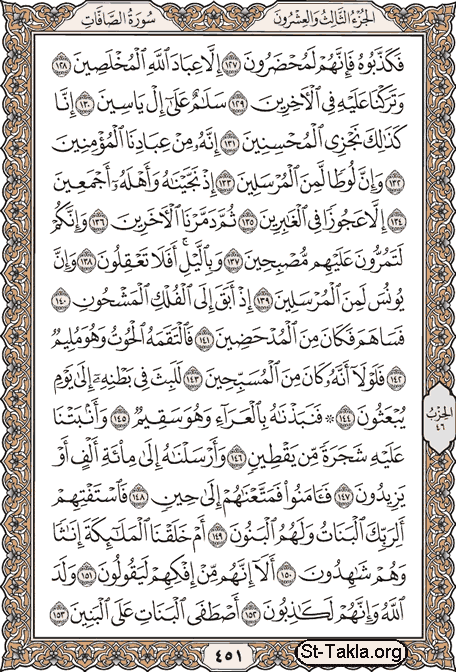 سُورَةُ الصَّافَّاتِ
الجُزْءُ الثَّالِثُ وَالعِشْرُونَ
فَكَذَّبُوهُ فَإِنَّهُمْ لَمُحْضَرُونَ ١٢٧ إِلَّا عِبَادَ ٱللَّهِ ٱلْمُخْلَصِينَ ١٢٨
وَتَرَكْنَا عَلَيْهِ فِي ٱلْءَاخِرِينَ ١٢٩ سَلَٰمٌ عَلَىٰٓ إِلْ يَاسِينَ ١٣٠ إِنَّا
كَذَٰلِكَ نَجْزِي ٱلْمُحْسِنِينَ ١٣١ إِنَّهُۥ مِنْ عِبَادِنَا ٱلْمُؤْمِنِينَ
١٣٢ وَإِنَّ لُوطًا لَّمِنَ ٱلْمُرْسَلِينَ ١٣٣ إِذْ نَجَّيْنَٰهُ وَأَهْلَهُۥٓ أَجْمَعِينَ
١٣٤ إِلَّا عَجُوزًا فِي ٱلْغَٰبِرِينَ ١٣٥ ثُمَّ دَمَّرْنَا ٱلْءَاخَرِينَ ١٣٦ وَإِنَّكُمْ
لَتَمُرُّونَ عَلَيْهِم مُّصْبِحِينَ ١٣٧ وَبِٱلَّيْلِۚ أَفَلَا تَعْقِلُونَ ١٣٨ وَإِنَّ
يُونُسَ لَمِنَ ٱلْمُرْسَلِينَ ١٣٩ إِذْ أَبَقَ إِلَى ٱلْفُلْكِ ٱلْمَشْحُونِ ١٤٠
فَسَاهَمَ فَكَانَ مِنَ ٱلْمُدْحَضِينَ ١٤١ فَٱلْتَقَمَهُ ٱلْحُوتُ وَهُوَ مُلِيمٌ
١٤٢ فَلَوْلَآ أَنَّهُۥ كَانَ مِنَ ٱلْمُسَبِّحِينَ ١٤٣ لَلَبِثَ فِي بَطْنِهِۦٓ إِلَىٰ يَوْمِ
يُبْعَثُونَ ١٤٤ ۞ فَنَبَذْنَٰهُ بِٱلْعَرَآءِ وَهُوَ سَقِيمٌ ١٤٥ وَأَنۢبَتْنَا
عَلَيْهِ شَجَرَةً مِّن يَقْطِينٍ ١٤٦ وَأَرْسَلْنَٰهُ إِلَىٰ مِا۟ئَةِ أَلْفٍ أَوْ
يَزِيدُونَ ١٤٧ فَـَٔامَنُوا۟ فَمَتَّعْنَٰهُمْ إِلَىٰ حِينٍ ١٤٨ فَٱسْتَفْتِهِمْ
أَلِرَبِّكَ ٱلْبَنَاتُ وَلَهُمُ ٱلْبَنُونَ ١٤٩ أَمْ خَلَقْنَا ٱلْمَلَٰٓئِكَةَ إِنَٰثًا
وَهُمْ شَٰهِدُونَ ١٥٠ أَلَآ إِنَّهُم مِّنْ إِفْكِهِمْ لَيَقُولُونَ ١٥١ وَلَدَ
ٱللَّهُ وَإِنَّهُمْ لَكَٰذِبُونَ ١٥٢ أَصْطَفَى ٱلْبَنَاتِ عَلَى ٱلْبَنِينَ ١٥٣
الحِزْبُ
٤٦
٤٥١
St-Takla.org